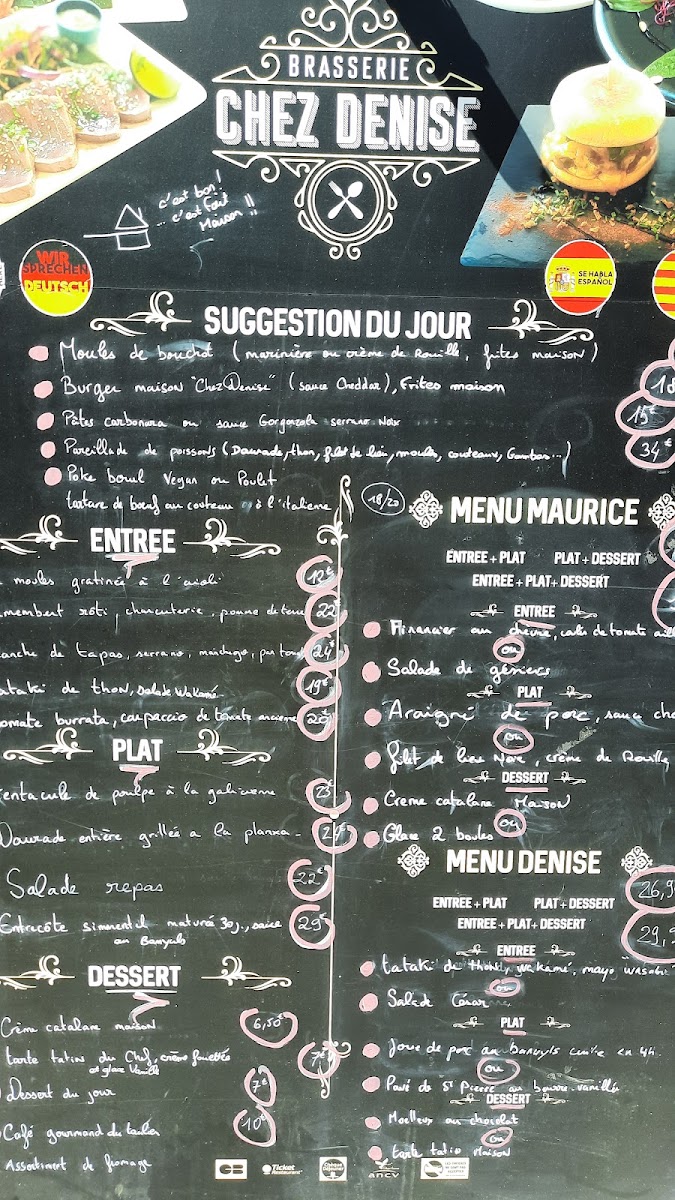 BRASSERIE
CHEZ DENISE
c'est bon!
... c'est fait
Maison !!
WIR
SPRECHEN
DEUTSCH
SE HABLA
ESPAÑOL
SUGGESTION DU JOUR
Moules de bouchot (marinière ou crème de Rouille, frites maison) 18
Burger maison "Chez Denise" (sauce Cheddar), Frites maison 15€
Pâtes carbonara ou sauce Gorgonzola serrano Noix 34€
Pareillade de poissons (Daurade, thon, filet de lieu, moules, couteaux, Gambas...)
Poke bowl Vegan ou Poulet
tartare de boeuf au couteau à l'italienne 18/20
ENTREE
moules gratinée à l'aïoli 12€
membert rôti, charcuterie, pomme de terre 22
anche de tapas, serrano, manchego, pan 24€
ataki de thon, salade Wakamé 19€
omate burrata, carpaccio de tomate ancienne
PLAT
entacule de poulpe à la galicienne 23€
Daurade entière grillée a la planxa
Salade repas 22€
Entrecôte simmental maturé 30j., sauce 29€
au Banyuls
DESSERT
Crème catalane maison 6,50
tarte tatin du Chef, crème fouettée 7€
et glace Vanille
Dessert du jour 7€
Café gourmand du 10€
Assortiment de fromage
MENU MAURICE
ENTREE + PLAT PLAT + DESSERT
ENTREE + PLAT + DESSERT
ENTREE
Financier au chèvre, de tomate
ou
Salade de gésiers
PLAT
Araigné de porc, sauce
ou
filet de lieu Noir, crème de Rouille
DESSERT
Creme catalane Maison
ou
Glace 2 boules
MENU DENISE
ENTREE + PLAT PLAT + DESSERT 26,9
ENTREE + PLAT + DESSERT 29,
ENTREE
tataki de thon, wakamé, mayo wasabi
ou
Salade César
PLAT
Joue de porc au banyuls cuite en 4h
ou
Pavé de St Pierre au beurre vanillé
DESSERT
Moelleux au chocolat
ou
tarte tatin Maison
Ticket
Restaurant
Chèque
Déjeuner
ancv